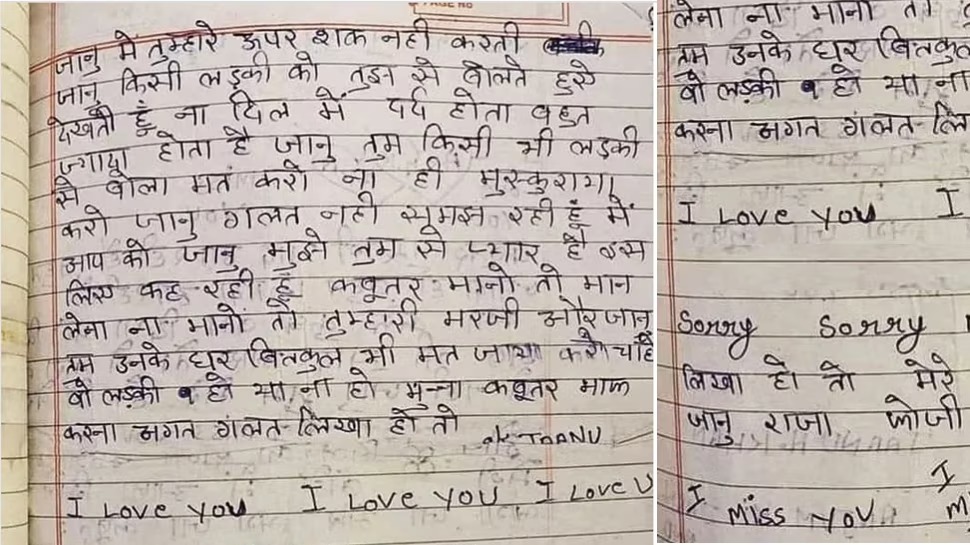 PAGE NO
जानु में तुम्हारे ऊपर शक नही करती
जानु किसी लड़की को तुझ से बोलते हुऐ
देखती हूँ ना दिल में दर्द होता बहुत
ज्यादा होता है जानु तुम किसी भी लड़की
से बोला मत करो ना ही मुस्कुराया
करो जानु गलत नही समझ रही हूँ में
आप को जानु मुझे तुम से प्यार है इस
लिए कह रही हूँ कबूतर मानो तो मान
लेना ना मानो तो तुम्हारी मरजी और जानु
तम उनके घर बितकुल भी मत जाया करो चाहे
वो लड़की हो या ना हो मुन्ना कबूतर माफ
करना अगत गलत लिखा हो तो
I Love you I Love you I Love U
लेना ना मानो तो
तम उनके घर बितकुल
वो लड़की हो या ना
करना अगत गलत लि
I Love you I
Sorry Sorry
लिखा हो तो मेरे
जानु राजा फोजी
I I
Miss you M